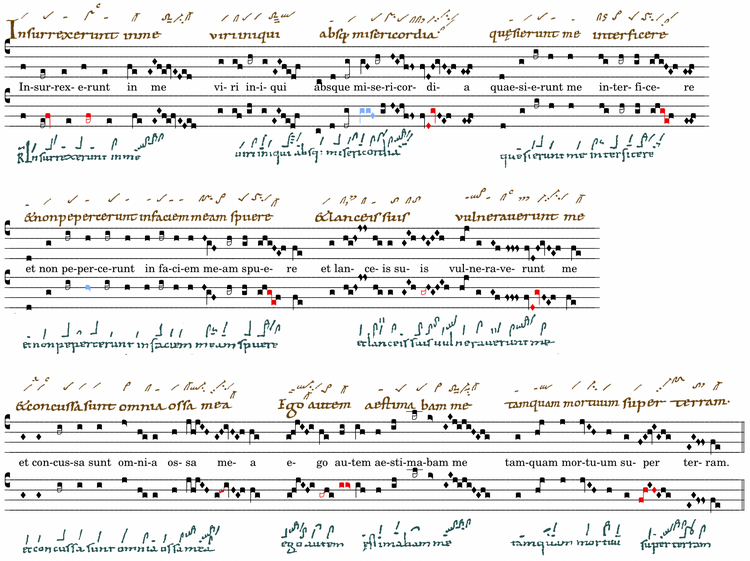 Insurrexerunt inme viri iniqui absq; misericordia quęsierunt me interficere
In-sur-rex- e-runt in me vi- ri in-i- qui absque mi-se-ri-cor- di- a quae-si-e-runt me in-ter- fi-ce- re
R Insurrexerunt inme viri iniqui absq; misericordia quęsierunt me interficere
&nonpepercerunt infaciem meam spuere &lanceis suis vulneraverunt me
et non pe-per-ce-runt in fa-ci-em me-am spu-e- re et lan- ce-is su- is vul-ne-ra-ve- runt me
etnonpepercerunt infaciem meam spuere etlanceis suis vulneraverunt me
&concussa sunt omnia ossa mea Ego autem aestima bam me tamquam mortuum super terram.
et con-cus-sa sunt om-ni-a os-sa me- a e- go au-tem ae-sti-ma-bam me tam-quam mor-tu-um su- per ter- ram.
etconcussa sunt omnia ossa mea ego autem ęstimabam me tamquam mortuu superterram